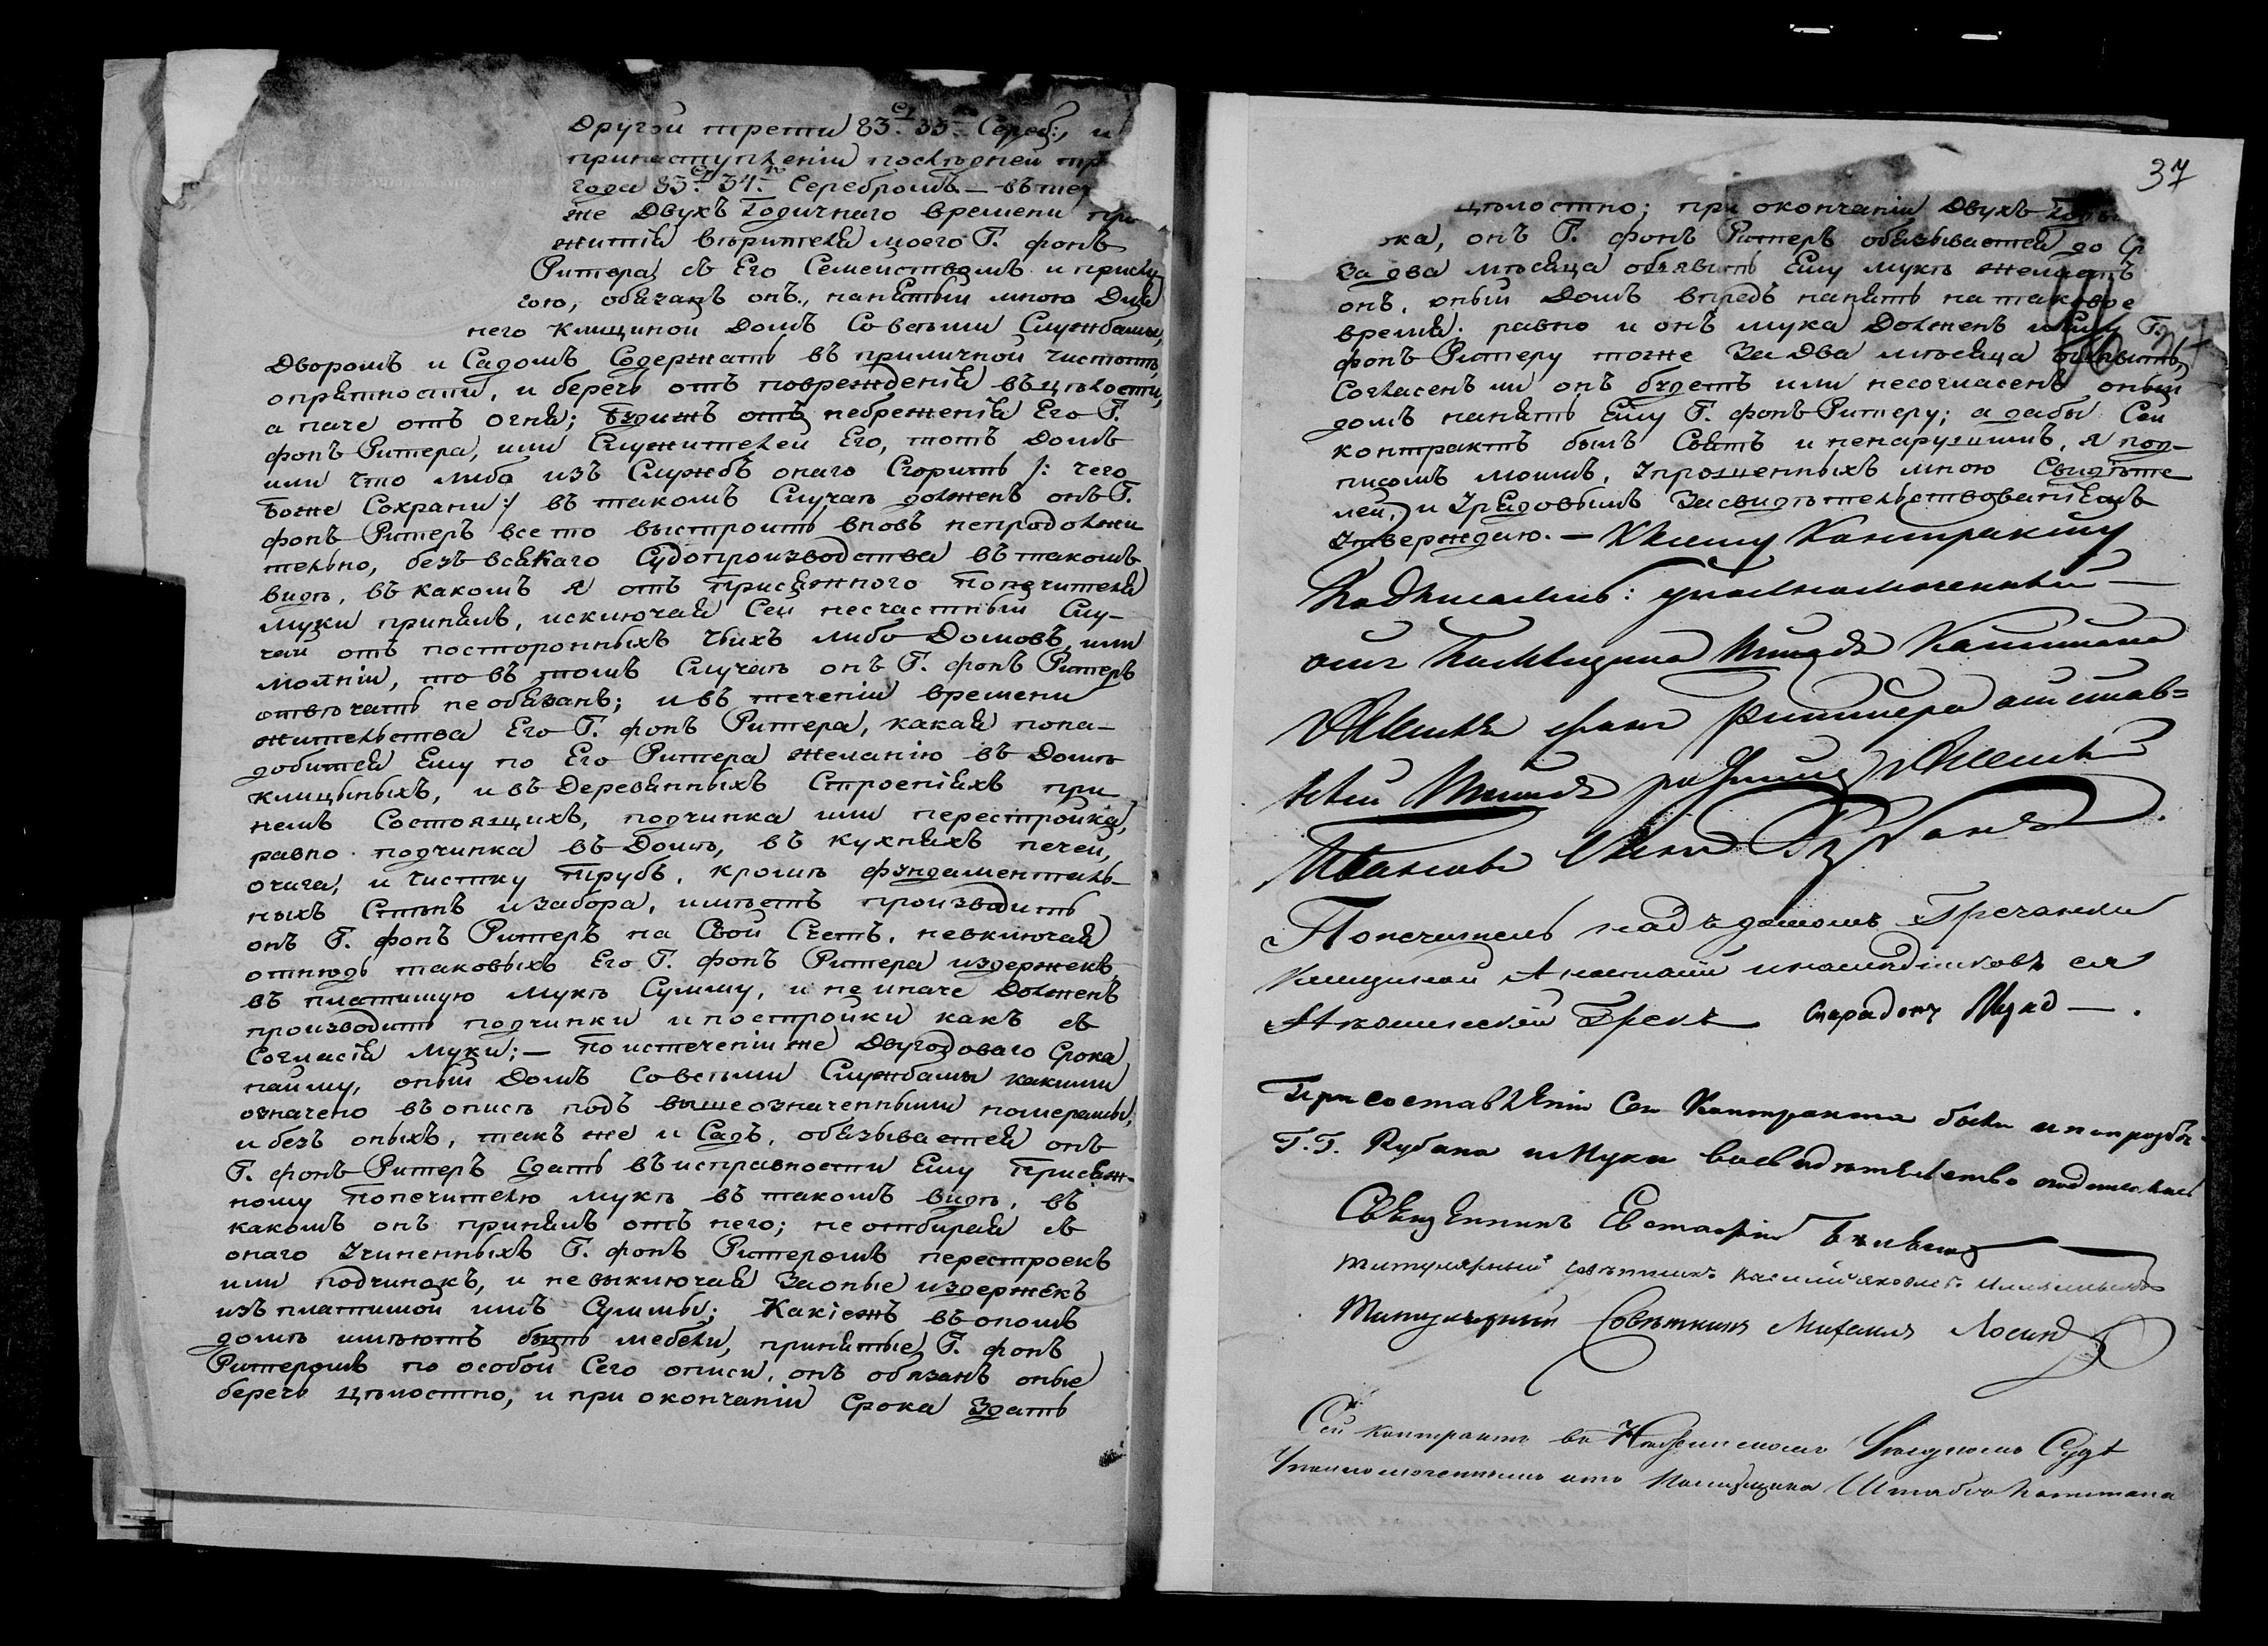 Другой трети 83 р. 33 к. Сереб:, и
принаступленіи последней тре
года 83 р. 34 к. Серебромъ. — въ теч
же Двухъ Годичнаго времени про
житія вѣрителя моего Г. фонъ
Ритера, съ Его Семействомъ и прислу
гою, обязанъ онъ, нанятый мною Для
него Клицыной Домъ Совсѣми Службами,
Дворомъ и Садомъ Содержать въ приличной чистотѣ,
опрятности, и беречь отъ поврежденія въ цѣлости,
а паче отъ огня; Будижъ отъ небреженія Его Г.
фонъ Ритера, или Служителей Его, тотъ Домъ
или что либо изъ Службъ онаго Сгоритъ /: чего
Боже Сохрани :/ въ такомъ Случаѣ долженъ онъ Г.
фонъ Ритеръ все то выстроить вновь непродолжи
тельно, безъ всякаго Судопроизводства въ такомъ
видѣ, въ какомъ я отъ Присяжного Попечителя
Муки принялъ, исключая Сей несчастный Слу-
чай отъ посторонныхъ чьихъ либо Домовъ, или
молніи, то въ томъ Случаѣ онъ Г. фонъ Ритеръ
отвѣчать не обязанъ; и въ теченіи времени
жительства Его Г. фонъ Ритера, какая пона-
добится Ему по Его Ритера желанію въ Домѣ
Клицыныхъ, и въ Деревянныхъ Строеніяхъ при
немъ Состоящихъ, починка или перестройка,
равно починка въ Домѣ, въ кухняхъ печей,
очага, и чистку Трубъ, кромѣ фундаменталь-
ныхъ Стѣнъ и забора, имѣетъ производить
онъ Г. фонъ Ритеръ на Свой Счетъ, невключая
отнюдь таковыхъ Его Г. фонъ Ритера издержекъ
въ платимую Мукѣ Сумму, и не иначе Долженъ
производить подчинки и постройки какъ съ
Согласія Муки; — По истеченіи же Двугодоваго Срока
найму, оный Домъ Совсѣми Службами какими
означено въ описѣ подъ вышеозначенными номерами,
и безъ оныхъ, такъ же и Садъ, обязывается онъ
Г. фонъ Ритеръ Сдать въ исправности Ему Присяж-
ному Попечителю Мукѣ въ такомъ видѣ, въ
какомъ онъ принялъ отъ него; не отбирая съ
онаго учиненныхъ Г. фонъ Ритеромъ перестроекъ
или подчинокъ, и невыключая За оные издержекъ
изъ платимой имъ Суммы; Какіежъ въ ономъ
домѣ имѣютъ быть мебели, принятые Г. фонъ
Ритеромъ по особой Сего описи, онъ обязанъ оные
беречь цѣлостно, и при окончаніи Срока Здать
37
цѣлостно; при окончаніи Двухъ
ока, онъ Г. фонъ Ритеръ обязывается до Ср
За два мѣсяца объявить Ему Мукѣ желаетъ
онъ, оный Домъ впредъ нанять на таковое
время. равно и онъ Мука Долженъ Ему Г.
фонъ Ритеру тоже За Два мѣсяца объявить,
Согласенъ ли онъ будетъ или несогласенъ оный
домъ нанять Ему Г. фонъ Ритеру; а дабы Сей
контрактъ былъ Святъ и ненарушимъ, я под-
писомъ моимъ, Упрошенныхъ мною Свидѣте
лей, и Урядовымъ Засвидѣтельствованіемъ
Утверждаю. — Ксему Контракту
Подписалъ: уполномоченный —
отъ Помѣщика Штабсъ Капитана
фонъ Риттера отстав=
ный Штабсъ
Ивановъ Сынъ Кубанъ.
Попечитель надъ домомъ Гречанки
Клицыной Анастасіи и наслѣдниковъ ея
Нѣжинскій Грекъ
При составленіи Сего Контракта были и по прозбѣ
Г. Г. Кубана и Муки во свидѣтельство подписались
Священникъ Евстафій
Титулярный Совѣтникъ Василій Яковлевъ
Титулярный Совѣтникъ Михаилъ Лосин
Сей контрактъ въ Нѣжинскомъ Уездномъ Судѣ
Уполномоченнымъ отъ Помѣщика Штабсъ Капитана